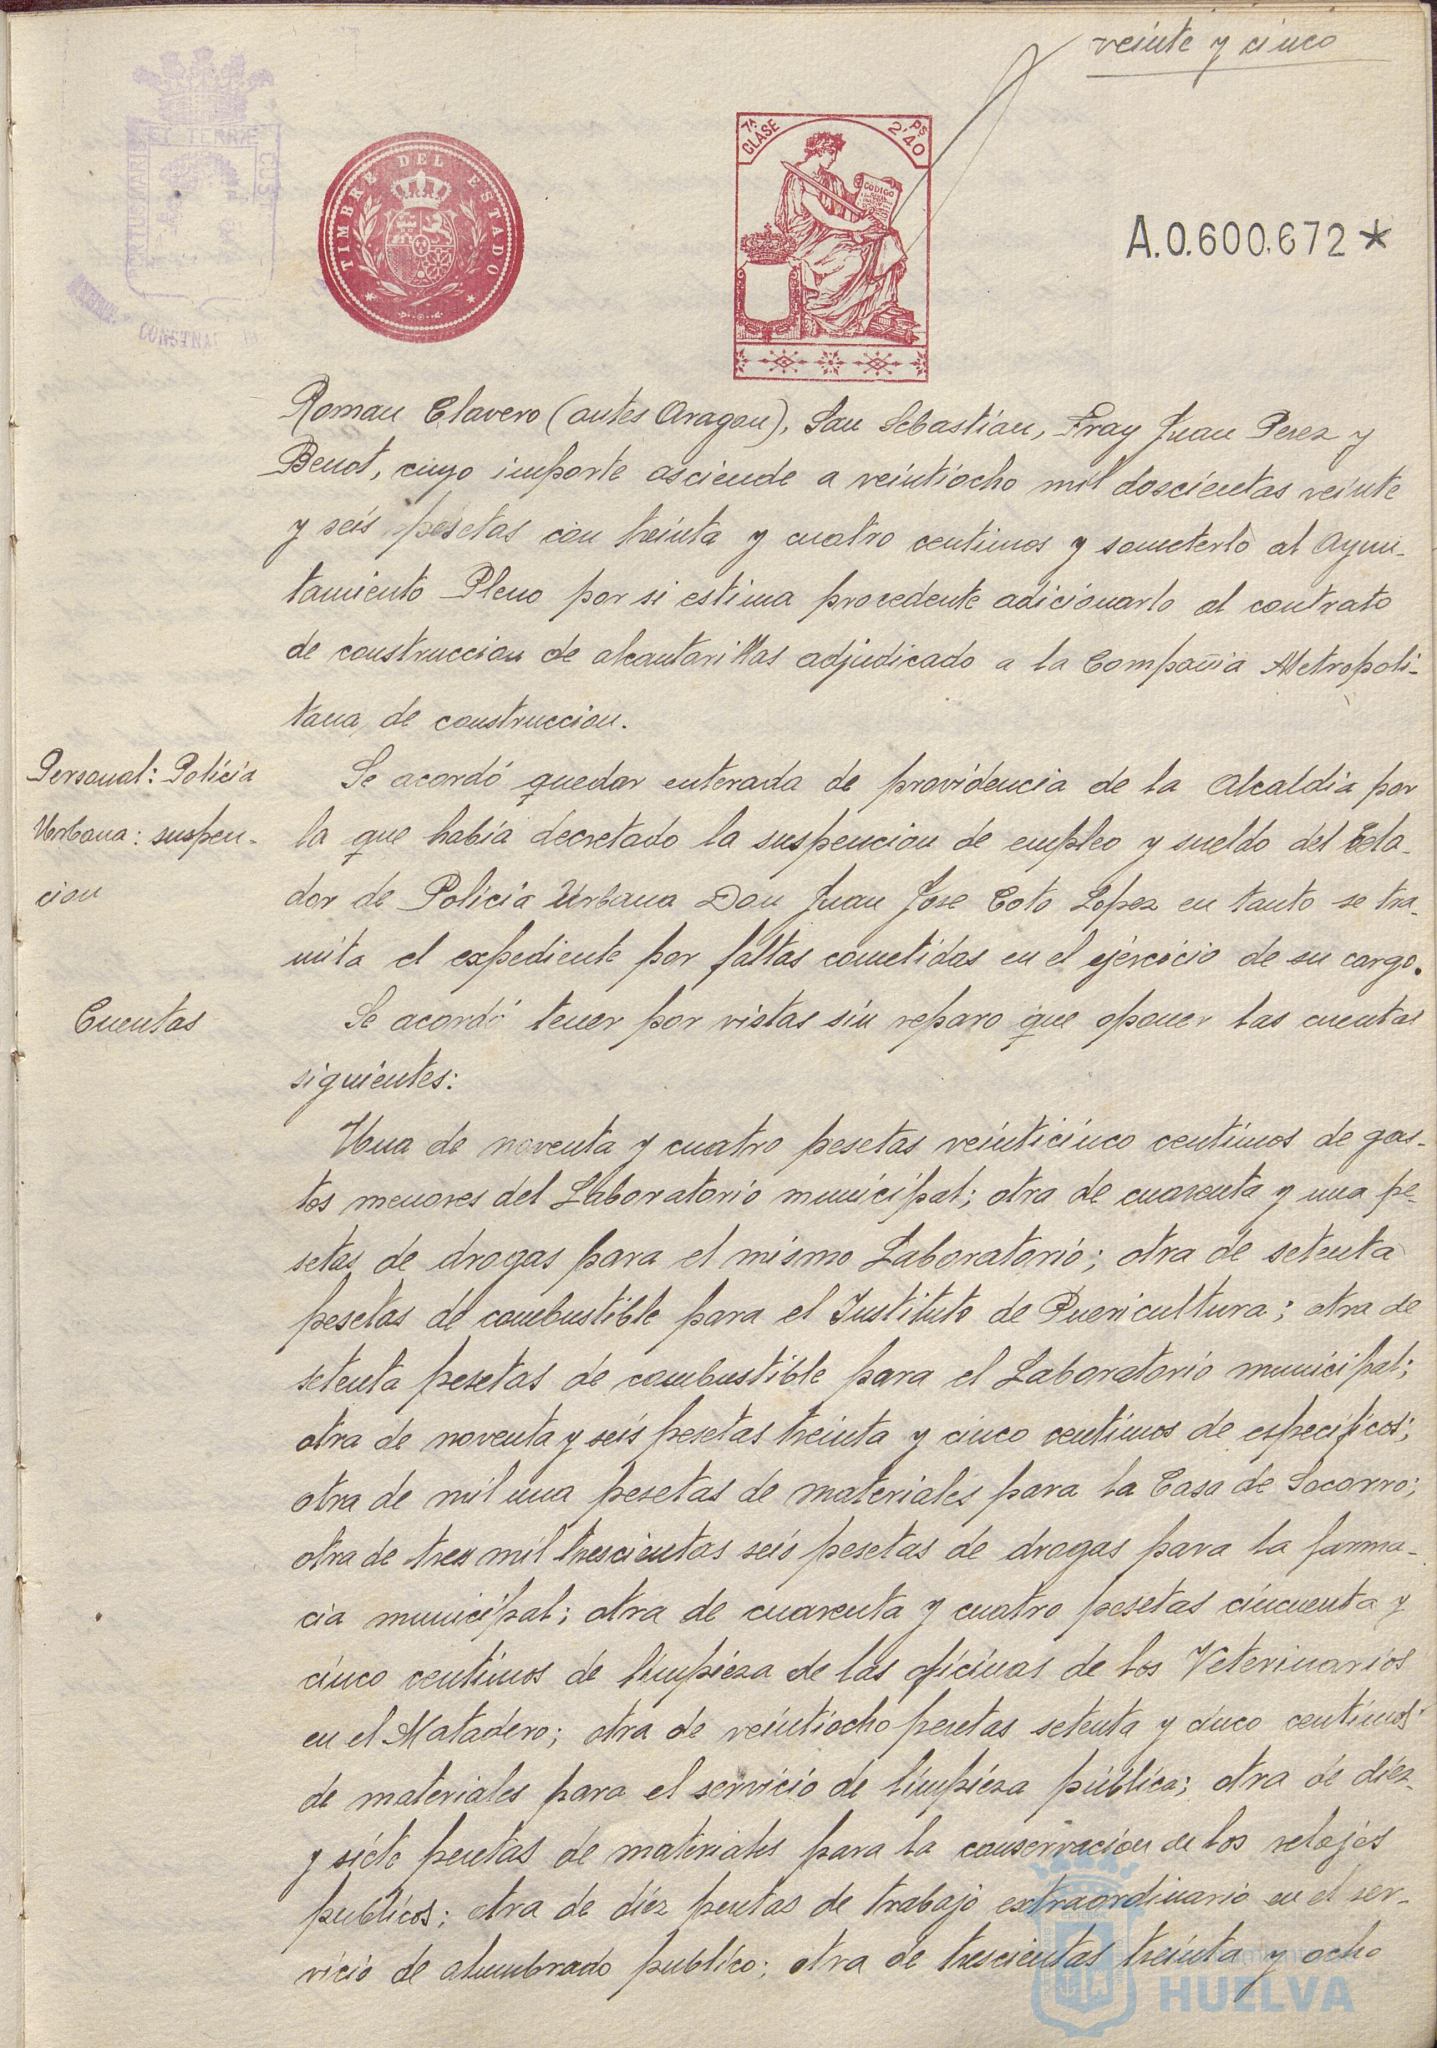 veinte y cinco
ET TERRÆ
PORTUS MARIS
CUS
TIMBRE DEL ESTADO
7ª CLASE
2'40 Ps
CODIGO
A.0.600.672*
Roman Clavero (antes Aragon), San Sebastián, Fray Juan Perez y
Benot, cuyo importe asciende a veintiocho mil doscientas veinte
y seis pesetas con treinta y cuatro centimos y someterlo al Ayun-
tamiento Pleno por si estima procedente adicionarlo al contrato
de construccion de alcantarillas adjudicado a la Compañia Metropoli-
tana de construccion.
Personal: Policia
Urbana: suspen-
cion
Se acordó quedar enterada de providencia de la Alcaldia por
la que habia decretado la suspencion de empleo y sueldo del Cela-
dor de Policia Urbana Don Juan Jose Coto Lopez en tanto se tra-
mita el expediente por faltas cometidas en el ejercicio de su cargo.
Cuentas
Se acordó tener por vistas sin reparo que oponer las cuentas
siguientes:
Una de noventa y cuatro pesetas veinticinco centimos de gas-
tos menores del Laboratorio municipal; otra de cuarenta y una pe-
setas de drogas para el mismo Laboratorio; otra de setenta
pesetas de combustible para el Instituto de Puericultura; otra de
setenta pesetas de combustible para el Laboratorio municipal;
otra de noventa y seis pesetas treinta y cinco centimos de especificos;
otra de mil una pesetas de materiales para la Casa de Socorro;
otra de tres mil trescientas seis pesetas de drogas para la farma-
cia municipal; otra de cuarenta y cuatro pesetas cincuenta y
cinco centimos de limpieza de las oficinas de los Veterinarios
en el Matadero; otra de veintiocho pesetas setenta y cinco centimos
de materiales para el servicio de limpieza pública; otra de diez
y siete pesetas de materiales para la conservacion de los relojes
publicos; otra de diez pesetas de trabajo extraordinario en el ser-
vicio de alumbrado publico; otra de trescientas treinta y ocho
HUELVA